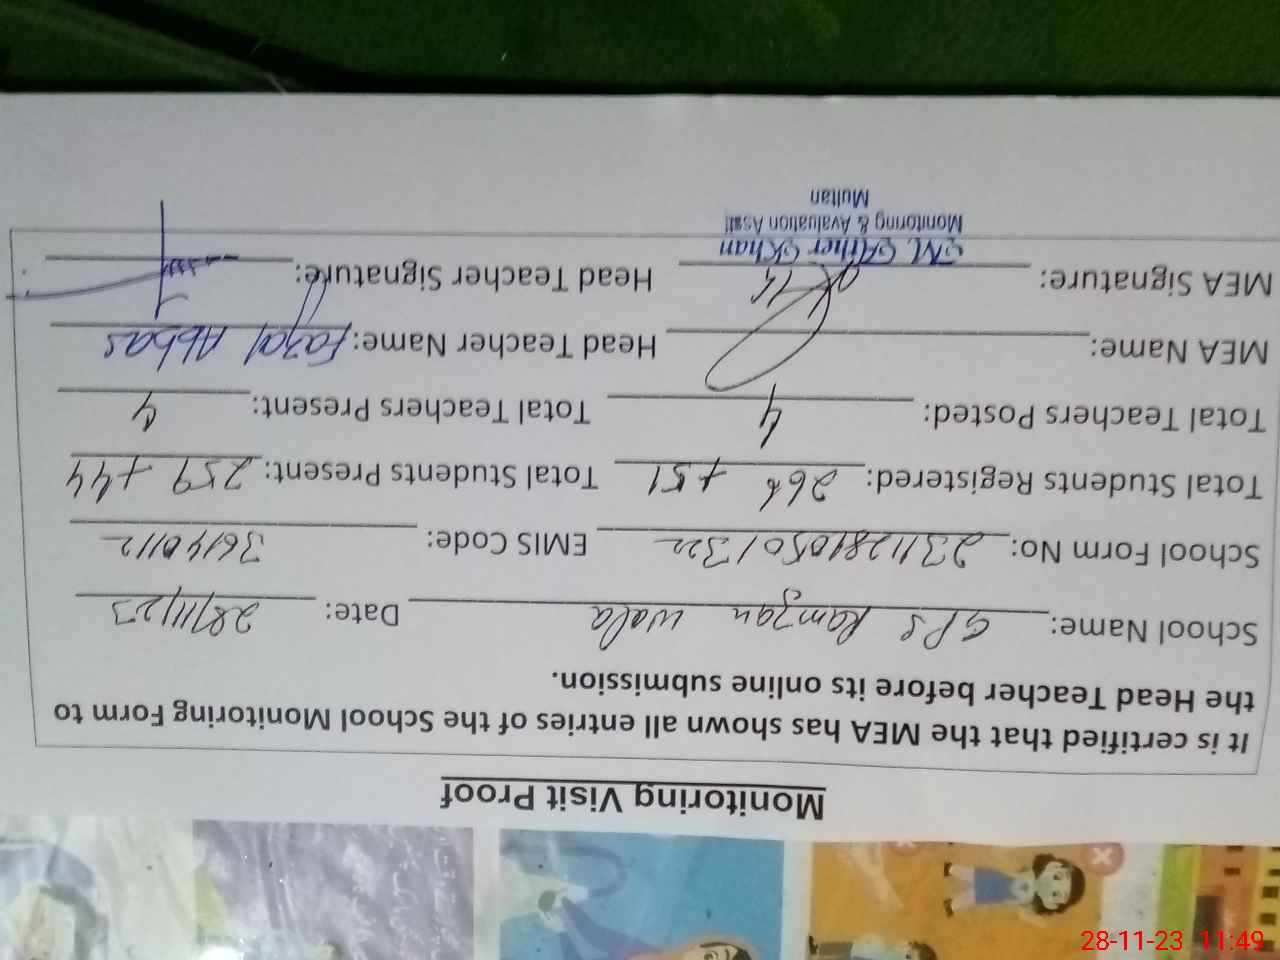 Monitoring Visit Proof
It is certified that the MEA has shown all entries of the School Monitoring Form to
the Head Teacher before its online submission.
School Name: GPS Ramzan wala Date: 28/11/23
School Form No: 23112810501322 EMIS Code: 36140112
Total Students Registered: 266 +51 Total Students Present: 259 +44
Total Teachers Posted: 4 Total Teachers Present: 4
MEA Name: Head Teacher Name: Fazal Abbas
MEA Signature: Head Teacher Signature:
M. Ather Khan
Monitoring & Avaluation Asstt
Multan
28-11-23 11:49